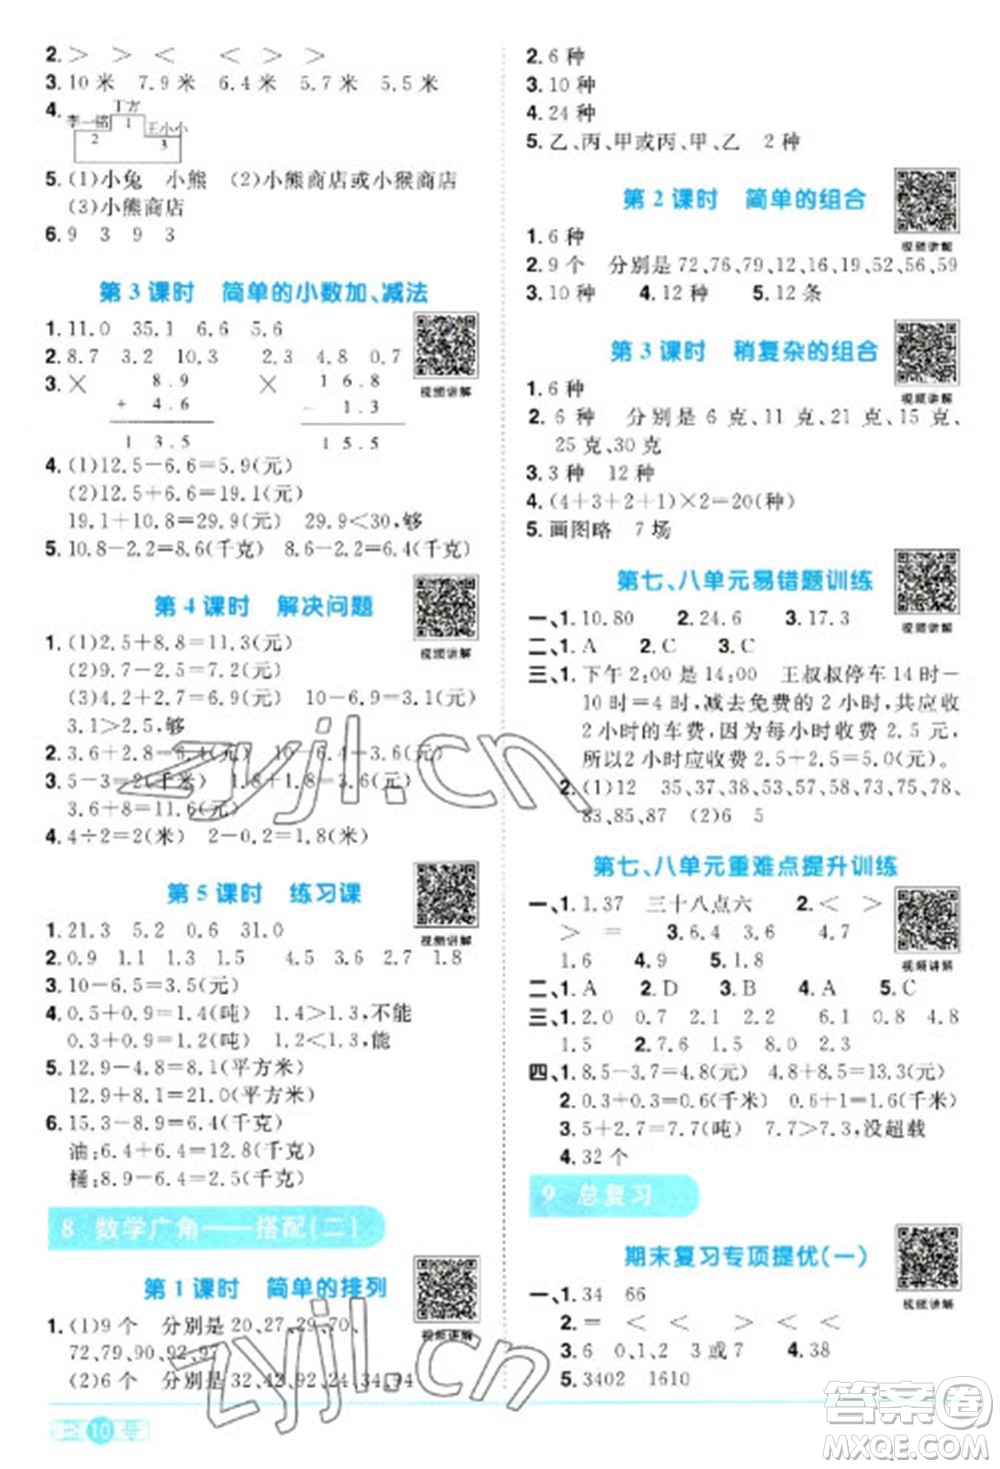 2. ＞ ＞ ＜ ＜ ＞ ＞
3. 10 米 7.9 米 6.4 米 5.7 米 5.5 米
4. 丁方
李一铭 1 王小小
2 3
5. (1)小兔 小熊 (2)小熊商店或小猴商店
(3)小熊商店
6. 9 3 9 3
第 3 课时 简单的小数加、减法
1. 11.0 35.1 6.6 5.6
2. 8.7 3.2 10.3 2.2 4.8 0.7
视频讲解
3. × 8.9 × 16.8
+ 4.6 - 1.3
13.5 15.5
4. (1)12.5-6.6=5.9(元)
(2)12.5+6.6=19.1(元)
19.1+10.8=29.9(元) 29.9＜30,够
5. 10.8-2.2=8.6(千克) 8.6-2.2=6.4(千克)
第 4 课时 解决问题
视频讲解
1. (1)2.5+8.8=11.3(元)
(2)9.7-2.5=7.2(元)
(3)4.2+2.7=6.9(元) 10-6.9=3.1(元)
3.1＞2.5,够
2. 3.6+2.8=6.4(元) 10-6.4=3.6(元)
3. 5-3=2(千米) 1.8+1.8=3.6(元)
3.6+8=11.6(元)
4. 4÷2=2(米) 2-0.2=1.8(米)
第 5 课时 练习课
视频讲解
1. 21.3 5.2 0.6 31.0
2. 0.9 1.1 1.3 1.5 3.6 2.7 1.8
3. 10-6.5=3.5(元)
4. 0.5+0.9=1.4(吨) 1.4＞1.3,不能
0.3+0.9=1.2(吨) 1.2＜1.3,能
5. 12.9-4.8=8.1(平方米)
12.9+8.1=21.0(平方米)
6. 15.3-8.9=6.4(千克)
油:6.4+6.4=12.8(千克)
桶:8.9-6.4=2.5(千克)
8 数学广角——搭配(二)
第 1 课时 简单的排列
视频讲解
1. (1)9 个 分别是 20、27、29、70、
72、79、90、92、97
(2)6 个 分别是 32、42、92、24、34、94
三 10 册
2. 6 种
3. 10 种
4. 24 种
5. 乙、丙、甲或丙、甲、乙 2 种
第 2 课时 简单的组合
视频讲解
1. 6 种
2. 9 个 分别是 72、76、79、12、16、19、52、56、59
3. 10 种 4. 12 种 5. 12 条
第 3 课时 稍复杂的组合
视频讲解
1. 6 种
2. 6 种 分别是 6 克、11 克、21 克、15 克、
25 克、30 克
3. 3 种 12 种
4. (4+3+2+1)×2=20(种)
5. 画图略 7 场
第七、八单元易错题训练
视频讲解
一、1. 10.80 2. 24.6 3. 17.3
二、1. A 2. C 3. C
三、1. 下午 2:00 是 14:00 王叔叔停车 14 时-
10 时=4 时,减去免费的 2 小时,共应收
2 小时的车费,因为每小时收费 2.5 元,
所以2 小时应收费 2.5+2.5=5.0(元)。
2. (1)12 35,37,38,53,57,58,73,75,78,
83,85,87 (2)6 5
第七、八单元重难点提升训练
视频讲解
一、1. 1.37 三十八点六 2. ＜ ＞
＞ = 3. 6.4 3.6 4.7
1.6 4. 9 5. 4
二、1. A 2. B 3. B 4. A 5. C
三、1. 2.0 0.7 2.1 2.2 6.1 0.8 4.8
1.5 2. 7.6 1.5 9.2 4.5
四、1. 8.5-3.7=4.8(元) 4.8+8.5=13.3(元)
2. 0.3+0.3=0.6(千米) 0.6+1=1.6(千米)
3. 5+2.7=7.7(吨) 7.7＞7.3,没超载
4. 32 个
9 总复习
期末复习专项提优(一)
视频讲解
一、1. 34 66
2. = ＜ ＜ ＞ ＜ ＞
3. 6 0、1、2 3 7或8 4. 38
5. 3402 1610
zyjl.cn
zyjl.cn
答案圈
MXQE.COM